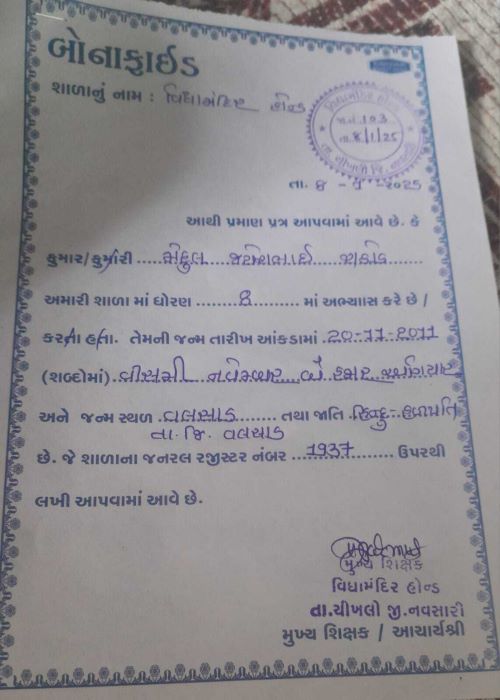 બોનાફાઈડ
શાળાનું નામ : વિદ્યામંદિર હોન્ડ
વિદ્યામંદિર હોન્ડ
જા.નં. 103
તા. 8/1/25
તા. ચીખલી જિ. નવસારી
તા. 8 - 1 - 2025
આથી પ્રમાણ પત્ર આપવામાં આવે છે. કે
કુમાર/કુમારી ..... મેહુલ ..... રાઠોડ
અમારી શાળા માં ધોરણ ......... 8 ......... માં અભ્યાાસ કરે છે /
કરતા હતા. તેમની જન્મ તારીખ આંકડામાં .20-11-2011
(શબ્દોમાં). વીસમી નવેમ્બર બે હજાર અગિયાર
અને જન્મ સ્થળ .વલસાડ........ તથા જાતિ .હિન્દુ-હળપતિ
તા. જિ. વલસાડ
છે. જે શાળાના જનરલ રજીસ્ટર નંબર ...1937............ ઉપરથી
લખી આપવામાં આવે છે.
મુખ્ય શિક્ષક
વિદ્યામંદિર હોન્ડ
તા.ચીખલી જી.નવસારી
મુખ્ય શિક્ષક / આચાર્યશ્રી